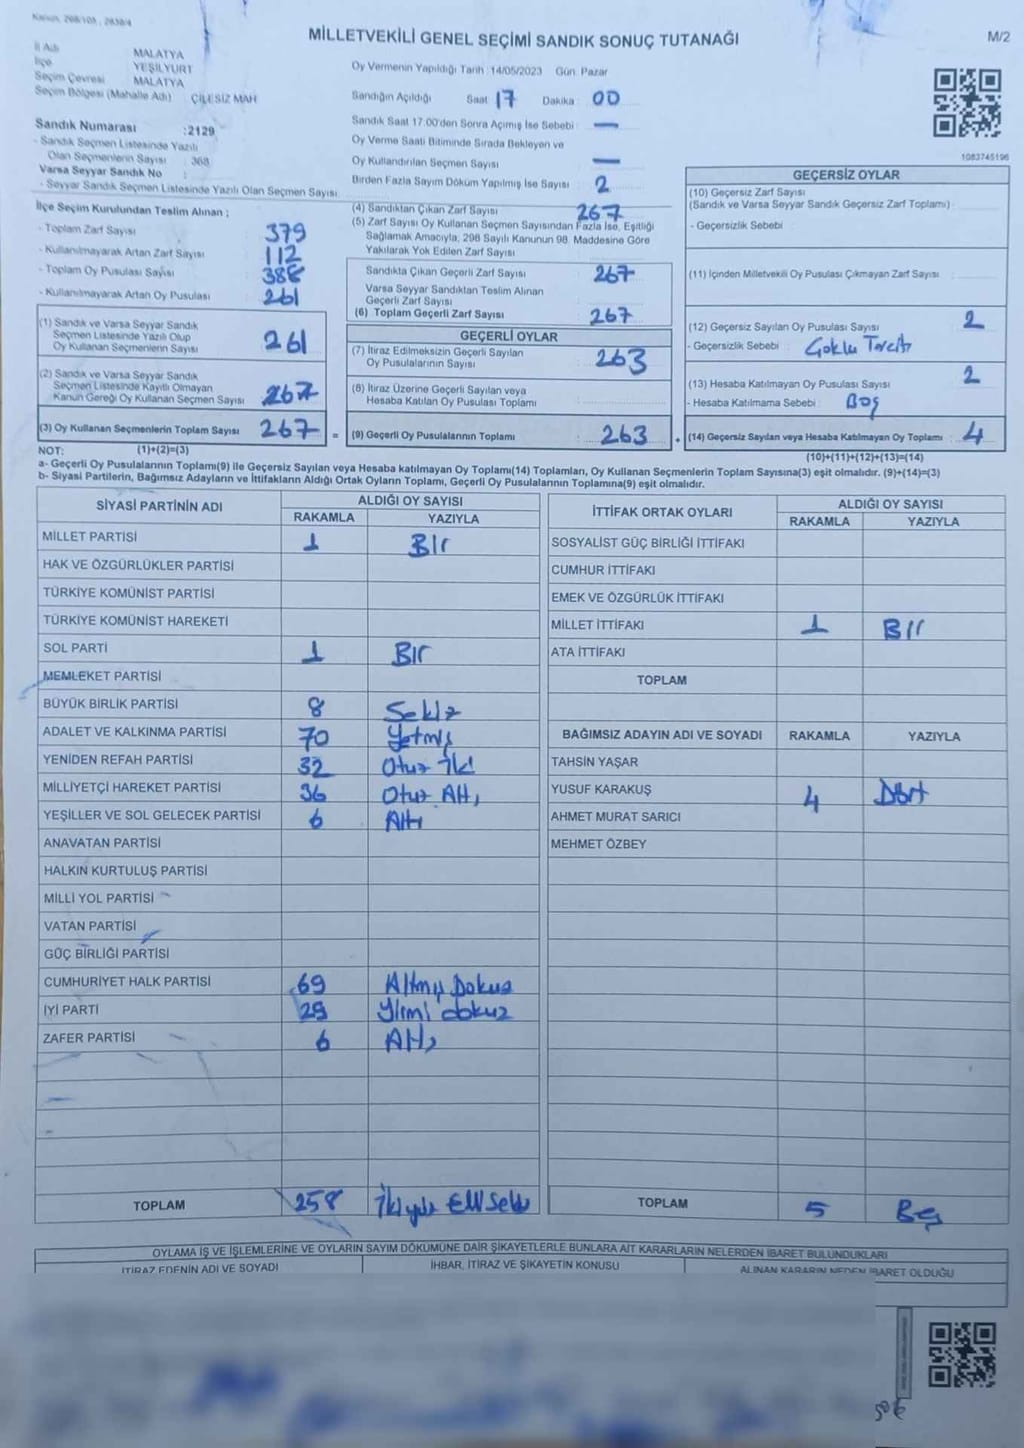 Kanun, 298/105 , 2839/4
MİLLETVEKİLİ GENEL SEÇİMİ SANDIK SONUÇ TUTANAĞI
M/2
İl Adı MALATYA
İlçe YEŞİLYURT
Seçim Çevresi MALATYA
Seçim Bölgesi (Mahalle Adı) ÇİLESİZ MAH
Sandık Numarası :2129
- Sandık Seçmen Listesinde Yazılı
Olan Seçmenlerin Sayısı : 368
Varsa Seyyar Sandık No :
- Seyyar Sandık Seçmen Listesinde Yazılı Olan Seçmen Sayısı
Oy Vermenin Yapıldığı Tarih :14/05/2023 Gün: Pazar
Sandığın Açıldığı Saat 17 Dakika : 00
Sandık Saat 17.00'den Sonra Açımış İse Sebebi : —
Oy Verme Saati Bitiminde Sırada Bekleyen ve
Oy Kullandırılan Seçmen Sayısı —
Birden Fazla Sayım Döküm Yapılmış İse Sayısı : 2
1083745196
İlçe Seçim Kurulundan Teslim Alınan ;
- Toplam Zarf Sayısı 379
- Kullanılmayarak Artan Zarf Sayısı 112
- Toplam Oy Pusulası Sayısı 388
- Kullanılmayarak Artan Oy Pusulası 261
(1) Sandık ve Varsa Seyyar Sandık
Seçmen Listesinde Yazılı Olup
Oy Kullanan Seçmenlerin Sayısı 261
(2) Sandık ve Varsa Seyyar Sandık
Seçmen Listesinde Kayıtlı Olmayan
Kanun Gereği Oy Kullanan Seçmen Sayısı 267
(3) Oy Kullanan Seçmenlerin Toplam Sayısı 267 =
(4) Sandıktan Çıkan Zarf Sayısı 267
(5) Zarf Sayısı Oy Kullanan Seçmen Sayısından Fazla İse, Eşitliği
Sağlamak Amacıyla; 298 Sayılı Kanunun 98. Maddesine Göre
Yakılarak Yok Edilen Zarf Sayısı
Sandıkta Çıkan Geçerli Zarf Sayısı 267
Varsa Seyyar Sandıktan Teslim Alınan
Geçerli Zarf Sayısı
(6) Toplam Geçerli Zarf Sayısı 267
GEÇERLİ OYLAR
(7) İtiraz Edilmeksizin Geçerli Sayılan
Oy Pusulalarının Sayısı 263
(8) İtiraz Üzerine Geçerli Sayılan veya
Hesaba Katılan Oy Pusulası Toplamı
(9) Geçerli Oy Pusulalarının Toplamı 263
GEÇERSİZ OYLAR
(10) Geçersiz Zarf Sayısı
(Sandık ve Varsa Seyyar Sandık Geçersiz Zarf Toplamı) :
- Geçersizlik Sebebi :
(11) İçinden Milletvekili Oy Pusulası Çıkmayan Zarf Sayısı
(12) Geçersiz Sayılan Oy Pusulası Sayısı : 2
- Geçersizlik Sebebi : Çoklu Tercih
(13) Hesaba Katılmayan Oy Pusulası Sayısı : 2
- Hesaba Katılmama Sebebi : Boş
(14) Geçersiz Sayılan veya Hesaba Katılmayan Oy Toplamı : 4
NOT: (1)+(2)=(3)
(10)+(11)+(12)+(13)=(14)
a- Geçerli Oy Pusulalarının Toplamı(9) ile Geçersiz Sayılan veya Hesaba katılmayan Oy Toplamı(14) Toplamları, Oy Kullanan Seçmenlerin Toplam Sayısına(3) eşit olmalıdır. (9)+(14)=(3)
b- Siyasi Partilerin, Bağımsız Adayların ve İttifakların Aldığı Ortak Oyların Toplamı, Geçerli Oy Pusulalarının Toplamına(9) eşit olmalıdır.
SİYASİ PARTİNİN ADI ALDIĞI OY SAYISI
RAKAMLA YAZIYLA
MİLLET PARTİSİ 1 Bir
HAK VE ÖZGÜRLÜKLER PARTİSİ
TÜRKİYE KOMÜNİST PARTİSİ
TÜRKİYE KOMÜNİST HAREKETİ
SOL PARTİ 1 Bir
MEMLEKET PARTİSİ
BÜYÜK BİRLİK PARTİSİ 8 Sekiz
ADALET VE KALKINMA PARTİSİ 70 Yetmiş
YENİDEN REFAH PARTİSİ 32 Otuz İki
MİLLİYETÇİ HAREKET PARTİSİ 36 Otuz Altı
YEŞİLLER VE SOL GELECEK PARTİSİ 6 Altı
ANAVATAN PARTİSİ
HALKIN KURTULUŞ PARTİSİ
MİLLİ YOL PARTİSİ
VATAN PARTİSİ
GÜÇ BİRLİĞİ PARTİSİ
CUMHURİYET HALK PARTİSİ 69 Altmış Dokuz
İYİ PARTİ 29 Yirmi dokuz
ZAFER PARTİSİ 6 Altı
TOPLAM 258 İkiyüz Elli Sekiz
İTTİFAK ORTAK OYLARI ALDIĞI OY SAYISI
RAKAMLA YAZIYLA
SOSYALİST GÜÇ BİRLİĞİ İTTİFAKI
CUMHUR İTTİFAKI
EMEK VE ÖZGÜRLÜK İTTİFAKI
MİLLET İTTİFAKI 1 Bir
ATA İTTİFAKI
TOPLAM
BAĞIMSIZ ADAYIN ADI VE SOYADI RAKAMLA YAZIYLA
TAHSİN YAŞAR
YUSUF KARAKUŞ 4 Dört
AHMET MURAT SARICI
MEHMET ÖZBEY
TOPLAM 5 Beş
OYLAMA İŞ VE İŞLEMLERİNE VE OYLARIN SAYIM DÖKÜMÜNE DAİR ŞİKAYETLERLE BUNLARA AİT KARARLARIN NELERDEN İBARET BULUNDUKLARI
İTİRAZ EDENİN ADI VE SOYADI İHBAR, İTİRAZ VE ŞİKAYETİN KONUSU ALINAN KARARIN NEDEN İBARET OLDUĞU